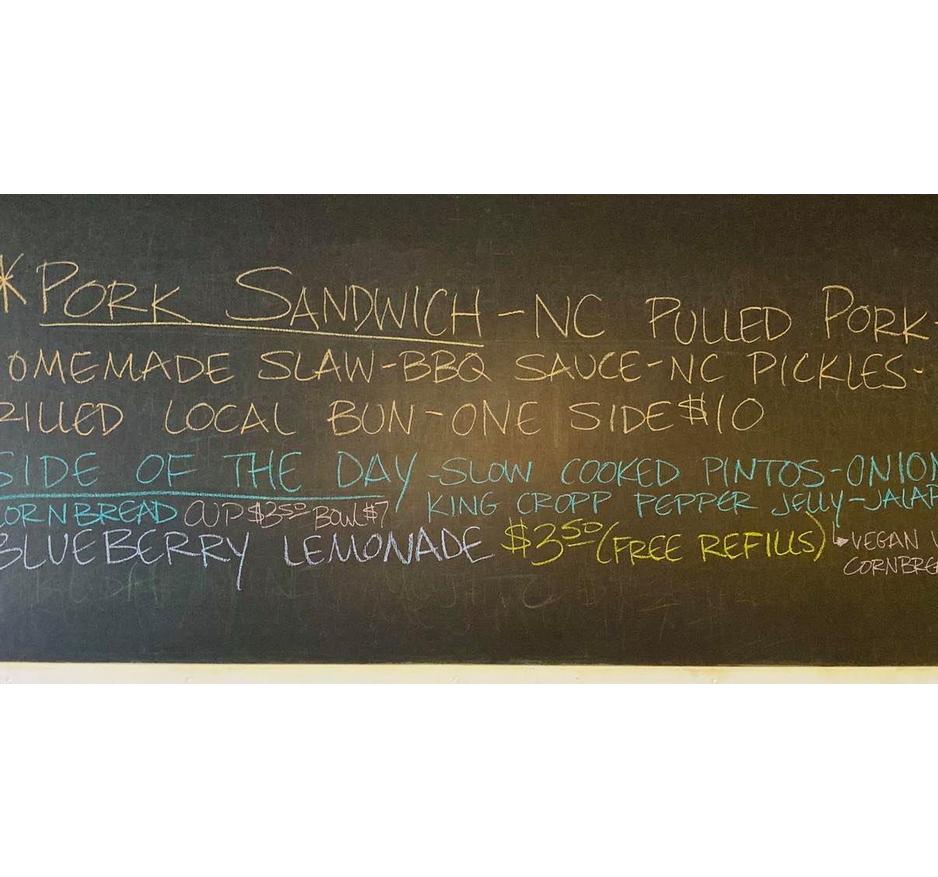 *PORK SANDWICH-NC PULLED PORK-
OMEMADE SLAW-BBQ SAUCE-NC PICKLES-
RILLED LOCAL BUN-ONE SIDE $10
SIDE OF THE DAY-SLOW COOKED PINTOS-ONION
KING CROPP PEPPER JELLY-JALAP
CORNBREAD CUP $3.50 BOWL $7
BLUEBERRY LEMONADE $3.50 (FREE REFILLS)
VEGAN
CORNBREA